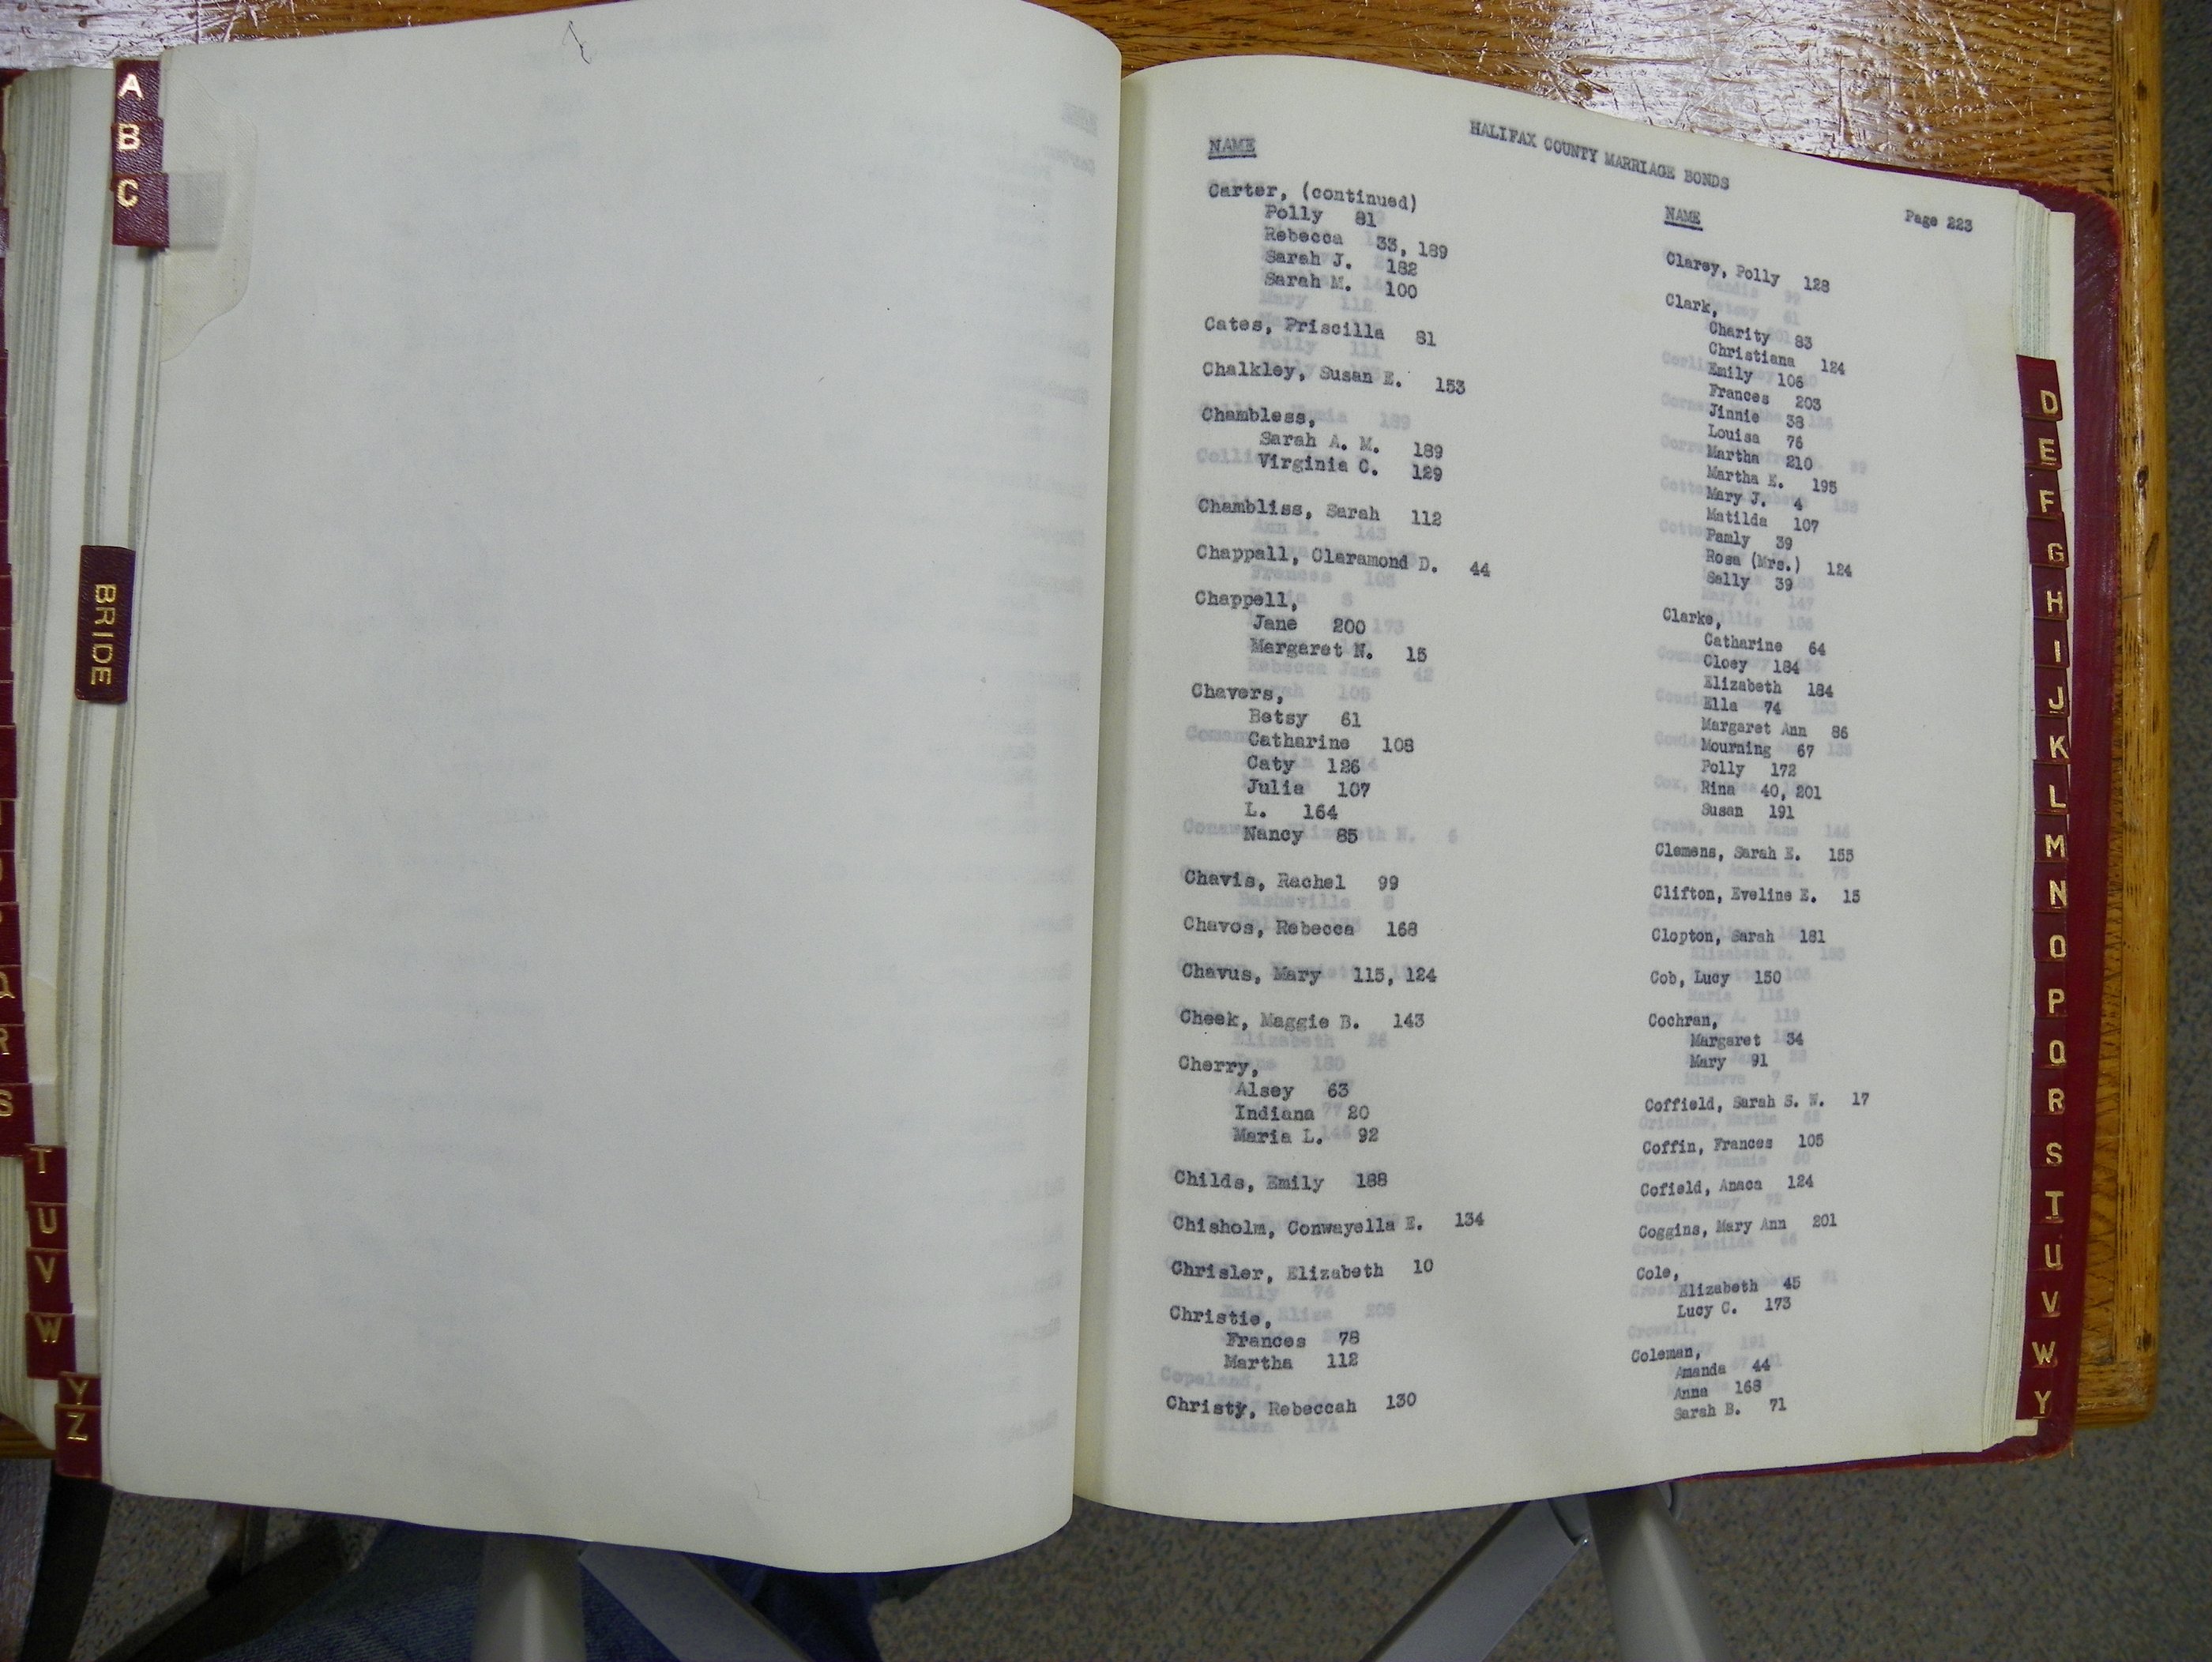 A
B
C
BRIDE
Q
R
S
T
U
V
W
Y
Z
HALIFAX COUNTY MARRIAGE BONDS
Page 223
NAME
Carter, (continued)
Polly 81
Rebecca 33, 189
Sarah J. 182
Sarah M. 100
Cates, Priscilla 81
Chalkley, Susan E. 153
Chambless,
Sarah A. M. 189
Virginia C. 129
Chambliss, Sarah 112
Chappall, Claramond D. 44
Chappell,
Jane 200
Margaret N. 15
Chavers,
Betsy 61
Catharine 108
Caty 126
Julia 107
L. 164
Nancy 85
Chavis, Rachel 99
Chavos, Rebecca 168
Chavus, Mary 115, 124
Cheek, Maggie B. 143
Cherry,
Alsey 63
Indiana 20
Maria L. 92
Childs, Emily 188
Chisholm, Conwayella E. 134
Chrisler, Elizabeth 10
Christie,
Frances 78
Martha 112
Christy, Rebeccah 130
NAME
Clarey, Polly 128
Clark,
Charity 83
Christiana 124
Emily 106
Frances 203
Jinnie 38
Louisa 76
Martha 210
Martha E. 195
Mary J. 4
Matilda 107
Pamly 39
Rosa (Mrs.) 124
Sally 39
Clarke,
Catharine 64
Cloey 184
Elizabeth 184
Ella 74
Margaret Ann 86
Mourning 67
Polly 172
Rina 40, 201
Susan 191
Clemens, Sarah E. 155
Clifton, Eveline E. 15
Clopton, Sarah 181
Cob, Lucy 150
Cochran,
Margaret 34
Mary 91
Coffield, Sarah S. W. 17
Coffin, Frances 105
Cofield, Anaca 124
Coggins, Mary Ann 201
Cole,
Elizabeth 45
Lucy C. 173
Coleman,
Amanda 44
Anna 168
Sarah B. 71
D
E
F
G
H
I
J
K
L
M
N
O
P
Q
R
S
T
U
V
W
Y